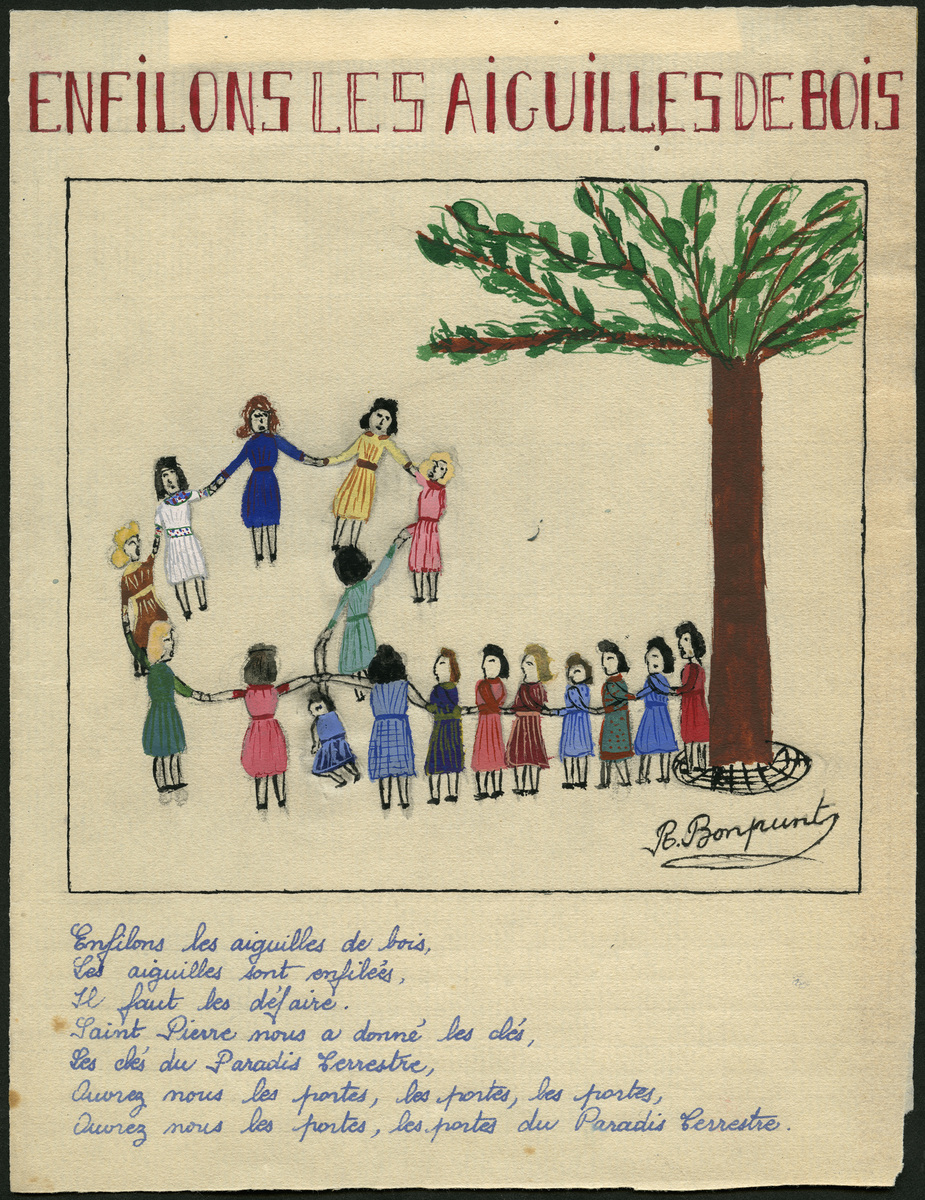 ENFILONS LES AIGUILLES DE BOIS
R. Bonpunt
Enfilons les aiguilles de bois,
Les aiguilles sont enfilées,
Il faut les défaire.
Saint Pierre nous a donné les clés,
Les clés du Paradis Terrestre,
Ouvrez nous les portes, les portes, les portes,
Ouvrez nous les portes, les portes du Paradis Terrestre.